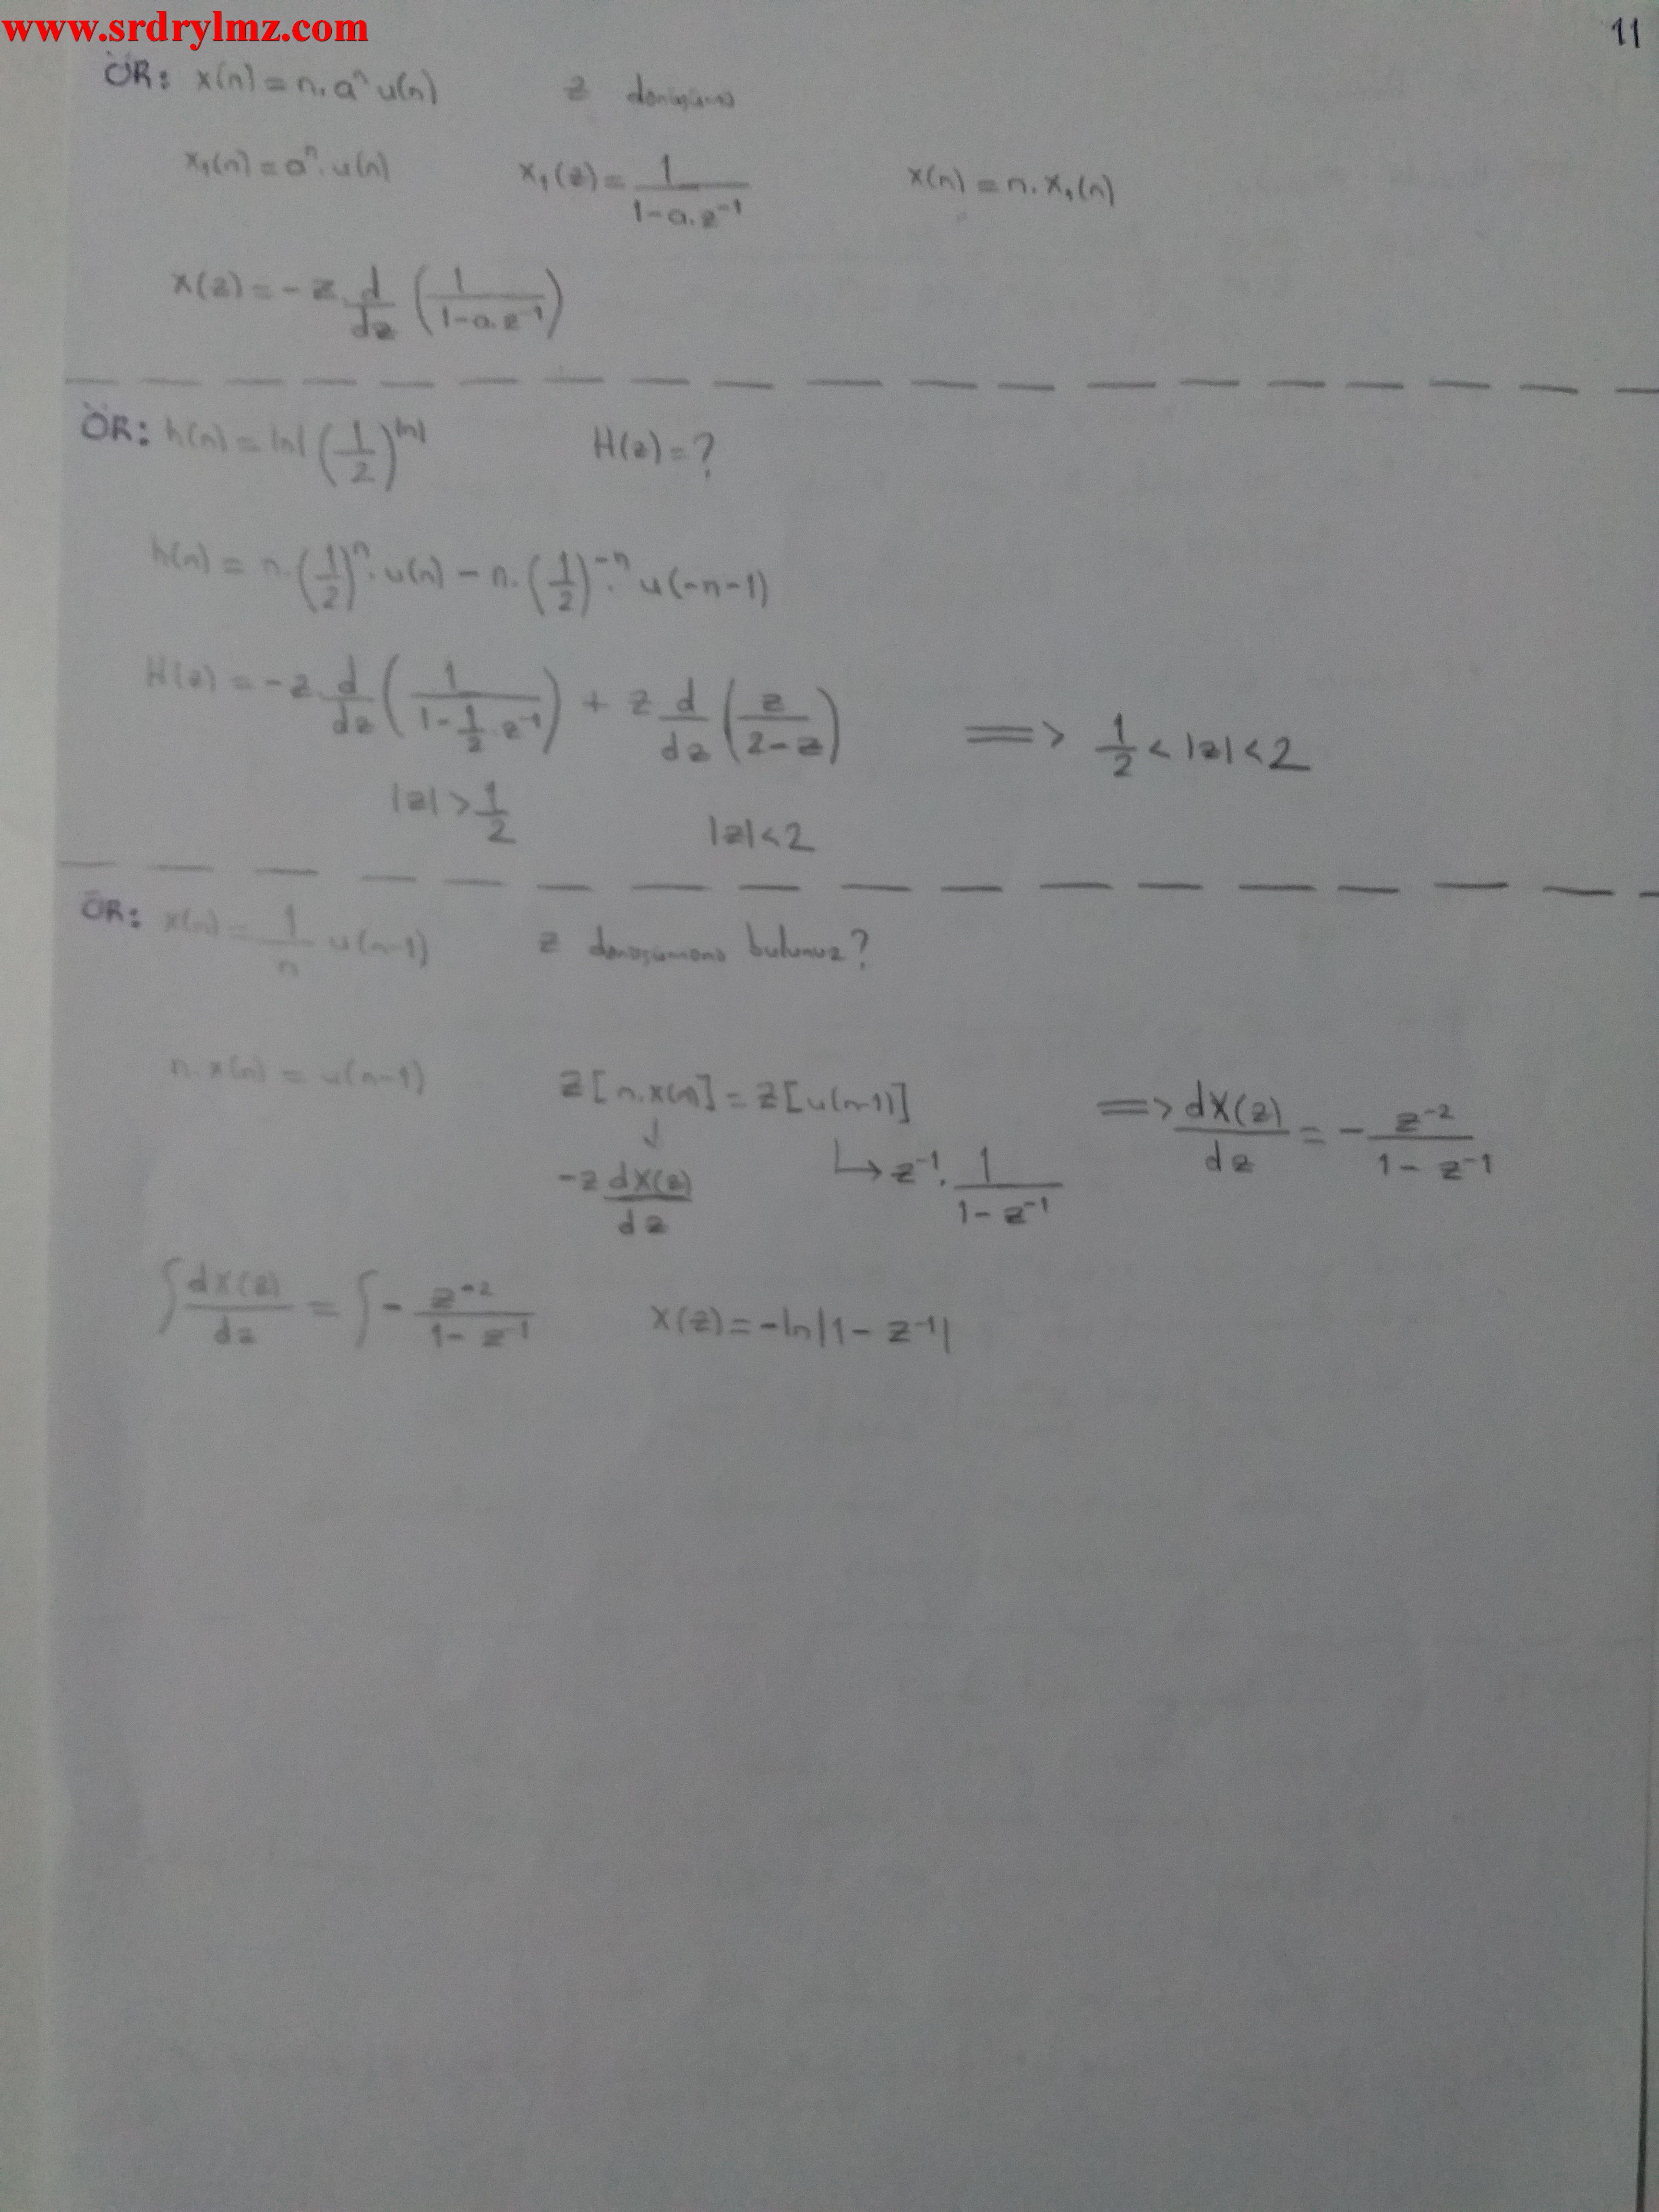 www.srdrylmz.com
11
ÖR: x(n) = n.aⁿ u(n) z dönüşümü
x₁(n) = aⁿ.u(n) x₁(z) = 1/(1-a.z⁻¹) x(n) = n.x₁(n)
x(z) = -z d/dz (1/(1-a.z⁻¹))
ÖR: h(n) = |n| (1/2)^|n| H(z) = ?
h(n) = n.(1/2)ⁿ.u(n) - n.(1/2)⁻ⁿ.u(-n-1)
H(z) = -z d/dz (1/(1-1/2.z⁻¹)) + z d/dz (z/(2-z)) ⟹ 1/2 < |z| < 2
|z| > 1/2 |z| < 2
ÖR: x(n) = 1/n u(n-1) z dönüşümünü bulunuz?
n.x(n) = u(n-1) Z[n.x(n)] = Z[u(n-1)] ⟹ dX(z)/dz = - z⁻²/(1-z⁻¹)
↓ -z dX(z)/dz ↳ z⁻¹. 1/(1-z⁻¹)
∫ dX(z)/dz = ∫ - z⁻²/(1-z⁻¹) X(z) = -ln|1-z⁻¹|